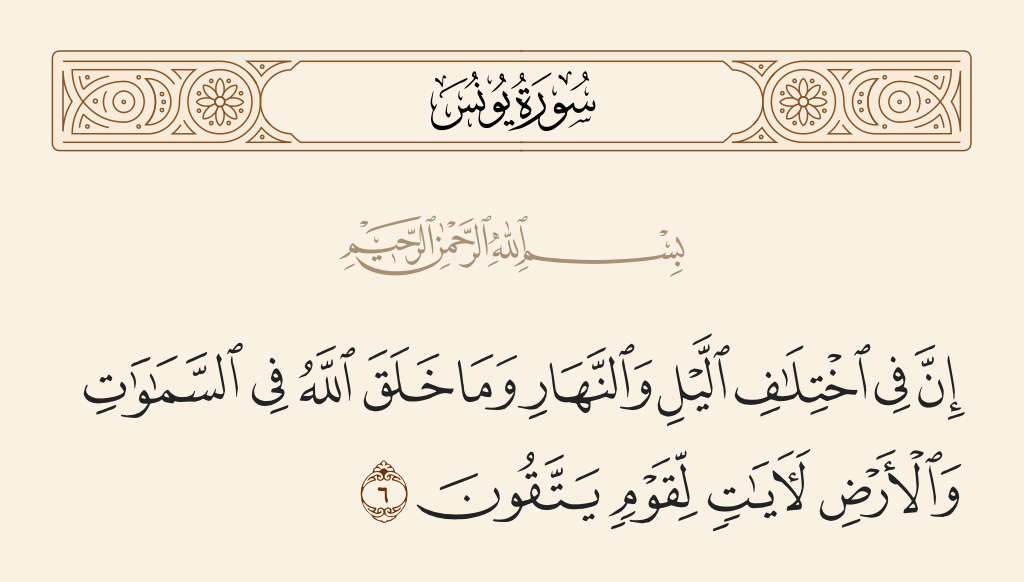 سُورَةُ يُونُسَ
بِسْمِ ٱللَّهِ ٱلرَّحْمَٰنِ ٱلرَّحِيمِ
إِنَّ فِى ٱخْتِلَٰفِ ٱلَّيْلِ وَٱلنَّهَارِ وَمَا خَلَقَ ٱللَّهُ فِى ٱلسَّمَٰوَٰتِ
وَٱلْأَرْضِ لَـَٔايَٰتٍ لِّقَوْمٍ يَتَّقُونَ ٦